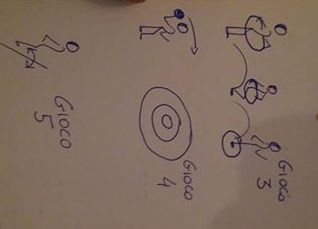 GIOCO
3
GIOCO
4
GIOCO
5